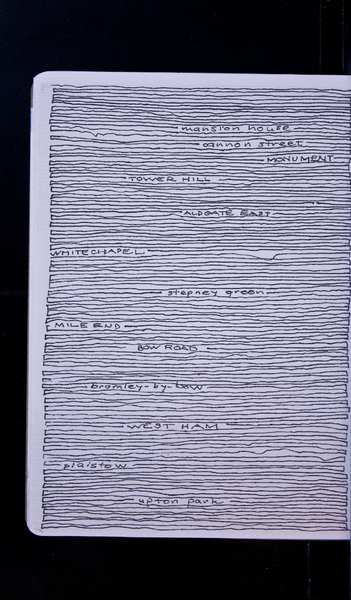 mansion house
cannon street
MONUMENT
TOWER HILL
ALDGATE EAST
WHITECHAPEL
stepney green
MILE END
BOW ROAD
bromley-by-bow
WEST HAM
plaistow
upton park